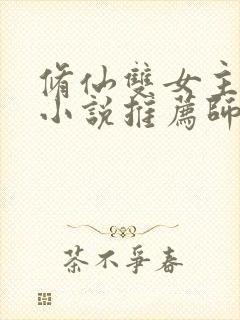 脩仙雙女主
小說推薦師
茶不爭春